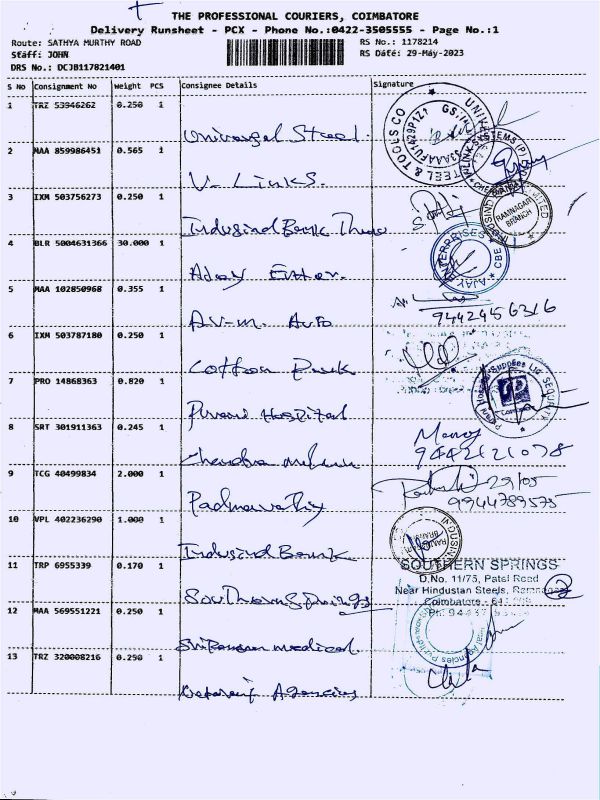 THE PROFESSIONAL COURIERS, COIMBATORE
Delivery Runsheet - PCX - Phone No.:0422-3505555 - Page No.:1
Route: SATHYA MURTHY ROAD
RS No.: 1178214
Staff: JOHN
RS Date: 29-May-2023
DRS No.: DCJB117821401
S No Consignment No Weight PCS Consignee Details Signature
1 TRZ 53946262 0.250 1 Universal Steel
STEEL & TOOLS CO
2 MAA 859986451 0.565 1 V-Links.
3 IXM 503756273 0.250 1 Indusind Bank
RAMNAGAR BRANCH
4 BLR 5004631366 30.000 1 Ajay Enter.
AJAY ENTERPRISES * CBE
5 MAA 102850968 0.355 1 A.V.M. Auto
9442456316
6 IXM 503787180 0.250 1 Cotton Park
7 PRO 14868363 0.820 1 Hospital
8 SRT 301911363 0.245 1 Chandra
Manoj
9442121078
9 TCG 40499834 2.000 1 Padmavathy
29/05
9944789575
10 VPL 402236290 1.000 1 Indusind Bank
11 TRP 6955339 0.170 1 Southern Springs
SOUTHERN SPRINGS
D.No. 11/73, Patel Road
Near Hindustan Steels, Ramnagar
Coimbatore - 641
12 MAA 569551221 0.250 1 medical.
13 TRZ 320008216 0.250 1 Agencies